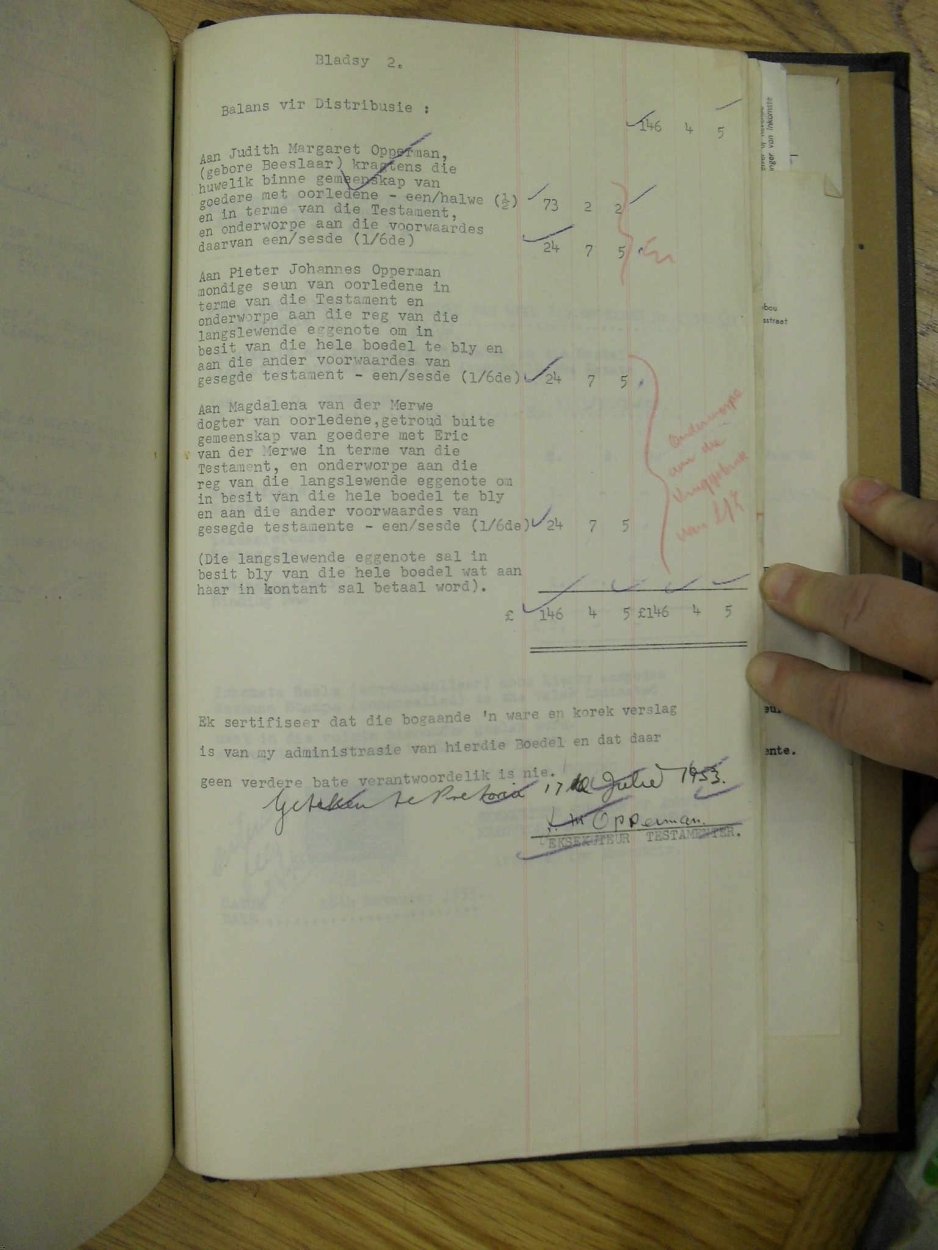 Bladsy 2.
Balans vir Distribusie :
146 4 5
Aan Judith Margaret Opperman,
(gebore Beeslaar) kragtens die
huwelik binne gemeenskap van
goedere met oorledene - een/halwe (½) 73 2 2
en in terme van die Testament,
en onderworpe aan die voorwaardes
daarvan een/sesde (1/6de) 24 7 5
Aan Pieter Johannes Opperman
mondige seun van oorledene in
terme van die Testament en
onderworpe aan die reg van die
langslewende eggenote om in
besit van die hele boedel te bly en
aan die ander voorwaardes van
gesegde testament - een/sesde (1/6de) 24 7 5
Aan Magdalena van der Merwe
dogter van oorledene,getroud buite
gemeenskap van goedere met Eric
van der Merwe in terme van die
Testament, en onderworpe aan die
reg van die langslewende eggenote om
in besit van die hele boedel te bly
en aan die ander voorwaardes van
gesegde testamente - een/sesde (1/6de) 24 7 5
Onderworpe
aan die
Vruggebruik
van
(Die langslewende eggenote sal in
besit bly van die hele boedel wat aan
haar in kontant sal betaal word).
£ 146 4 5 £146 4 5
Ek sertifiseer dat die bogaande 'n ware en korek verslag
is van my administrasie van hierdie Boedel en dat daar
geen verdere bate verantwoordelik is nie.
Geteken te Pretoria 17 Julie 1953.
Opperman.
EKSEKUTEUR TESTAMENTER.
nger van Inkomste
bou
sstraat
eur
ente.